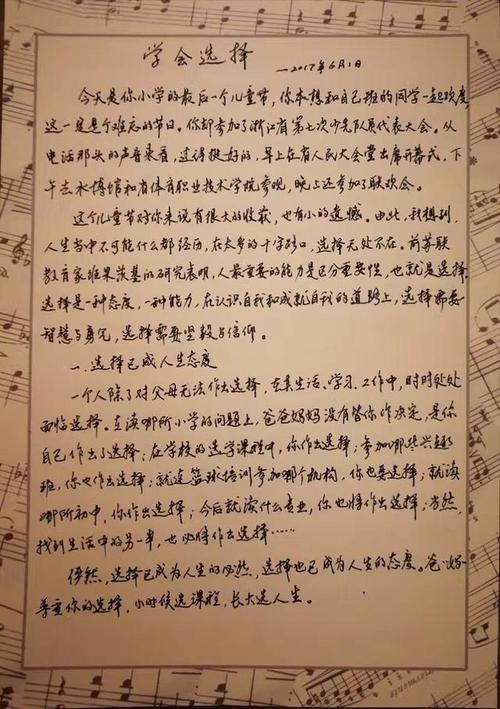 学会选择
—2017年6月1日
今天是你小学的最后一个儿童节,你本想和自己班的同学一起欢度,
这一定是个难忘的节日。你却参加了浙江省第七次少先队员代表大会。从
电话那头的声音来看,过得挺好的,早上在省人民大会堂出席开幕式,下
午去水博馆和省体育职业技术学院参观,晚上还参加了联欢会。
这个儿童节对你来说有很大的收获,也有小的遗憾。由此,我想到,
人生当中不可能什么都经历,在太多的十字路口,选择无处不在。前苏联
教育家维果茨基的研究表明,人最重要的能力是区分重要性,也就是选择。
选择是一种态度,一种能力,在认识自我和成就自我的道路上,选择需要
智慧与勇气,选择需要坚毅与信仰。
一、选择已成人生态度
一个人除了对父母无法作出选择,在其生活、学习、工作中,时时处处
面临选择。在读哪所小学的问题上,爸爸妈妈没有替你作决定,是你
自己作出了选择;在学校的选学课程中,你作出选择;参加哪些兴趣
班,你也作出选择;就连篮球培训参加哪个机构,你也要选择;就读
哪所初中,你作出选择;今后就读什么专业,你也将作出选择,当然,
找到生活中的另一半,也必将作出选择……
俨然,选择已成为人生的必然,选择也已成为人生的态度。爸妈
尊重你的选择,小时候选课程,长大选人生。